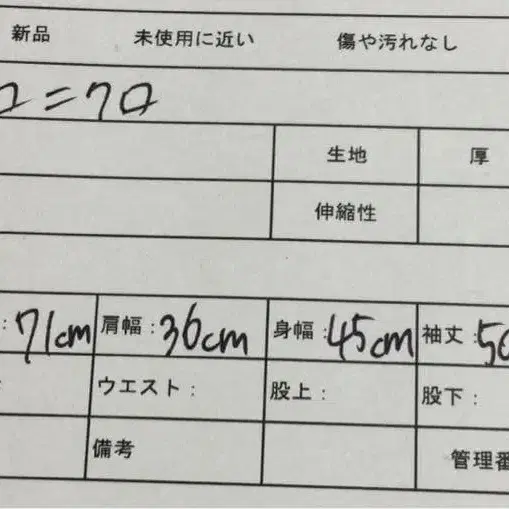 新品 未使用に近い 傷や汚れなし
ユニクロ
生地 厚
伸縮性
: 71cm 肩幅 : 36cm 身幅 : 45cm 袖丈 : 50
ウエスト : 股上 : 股下 :
備考 管理番